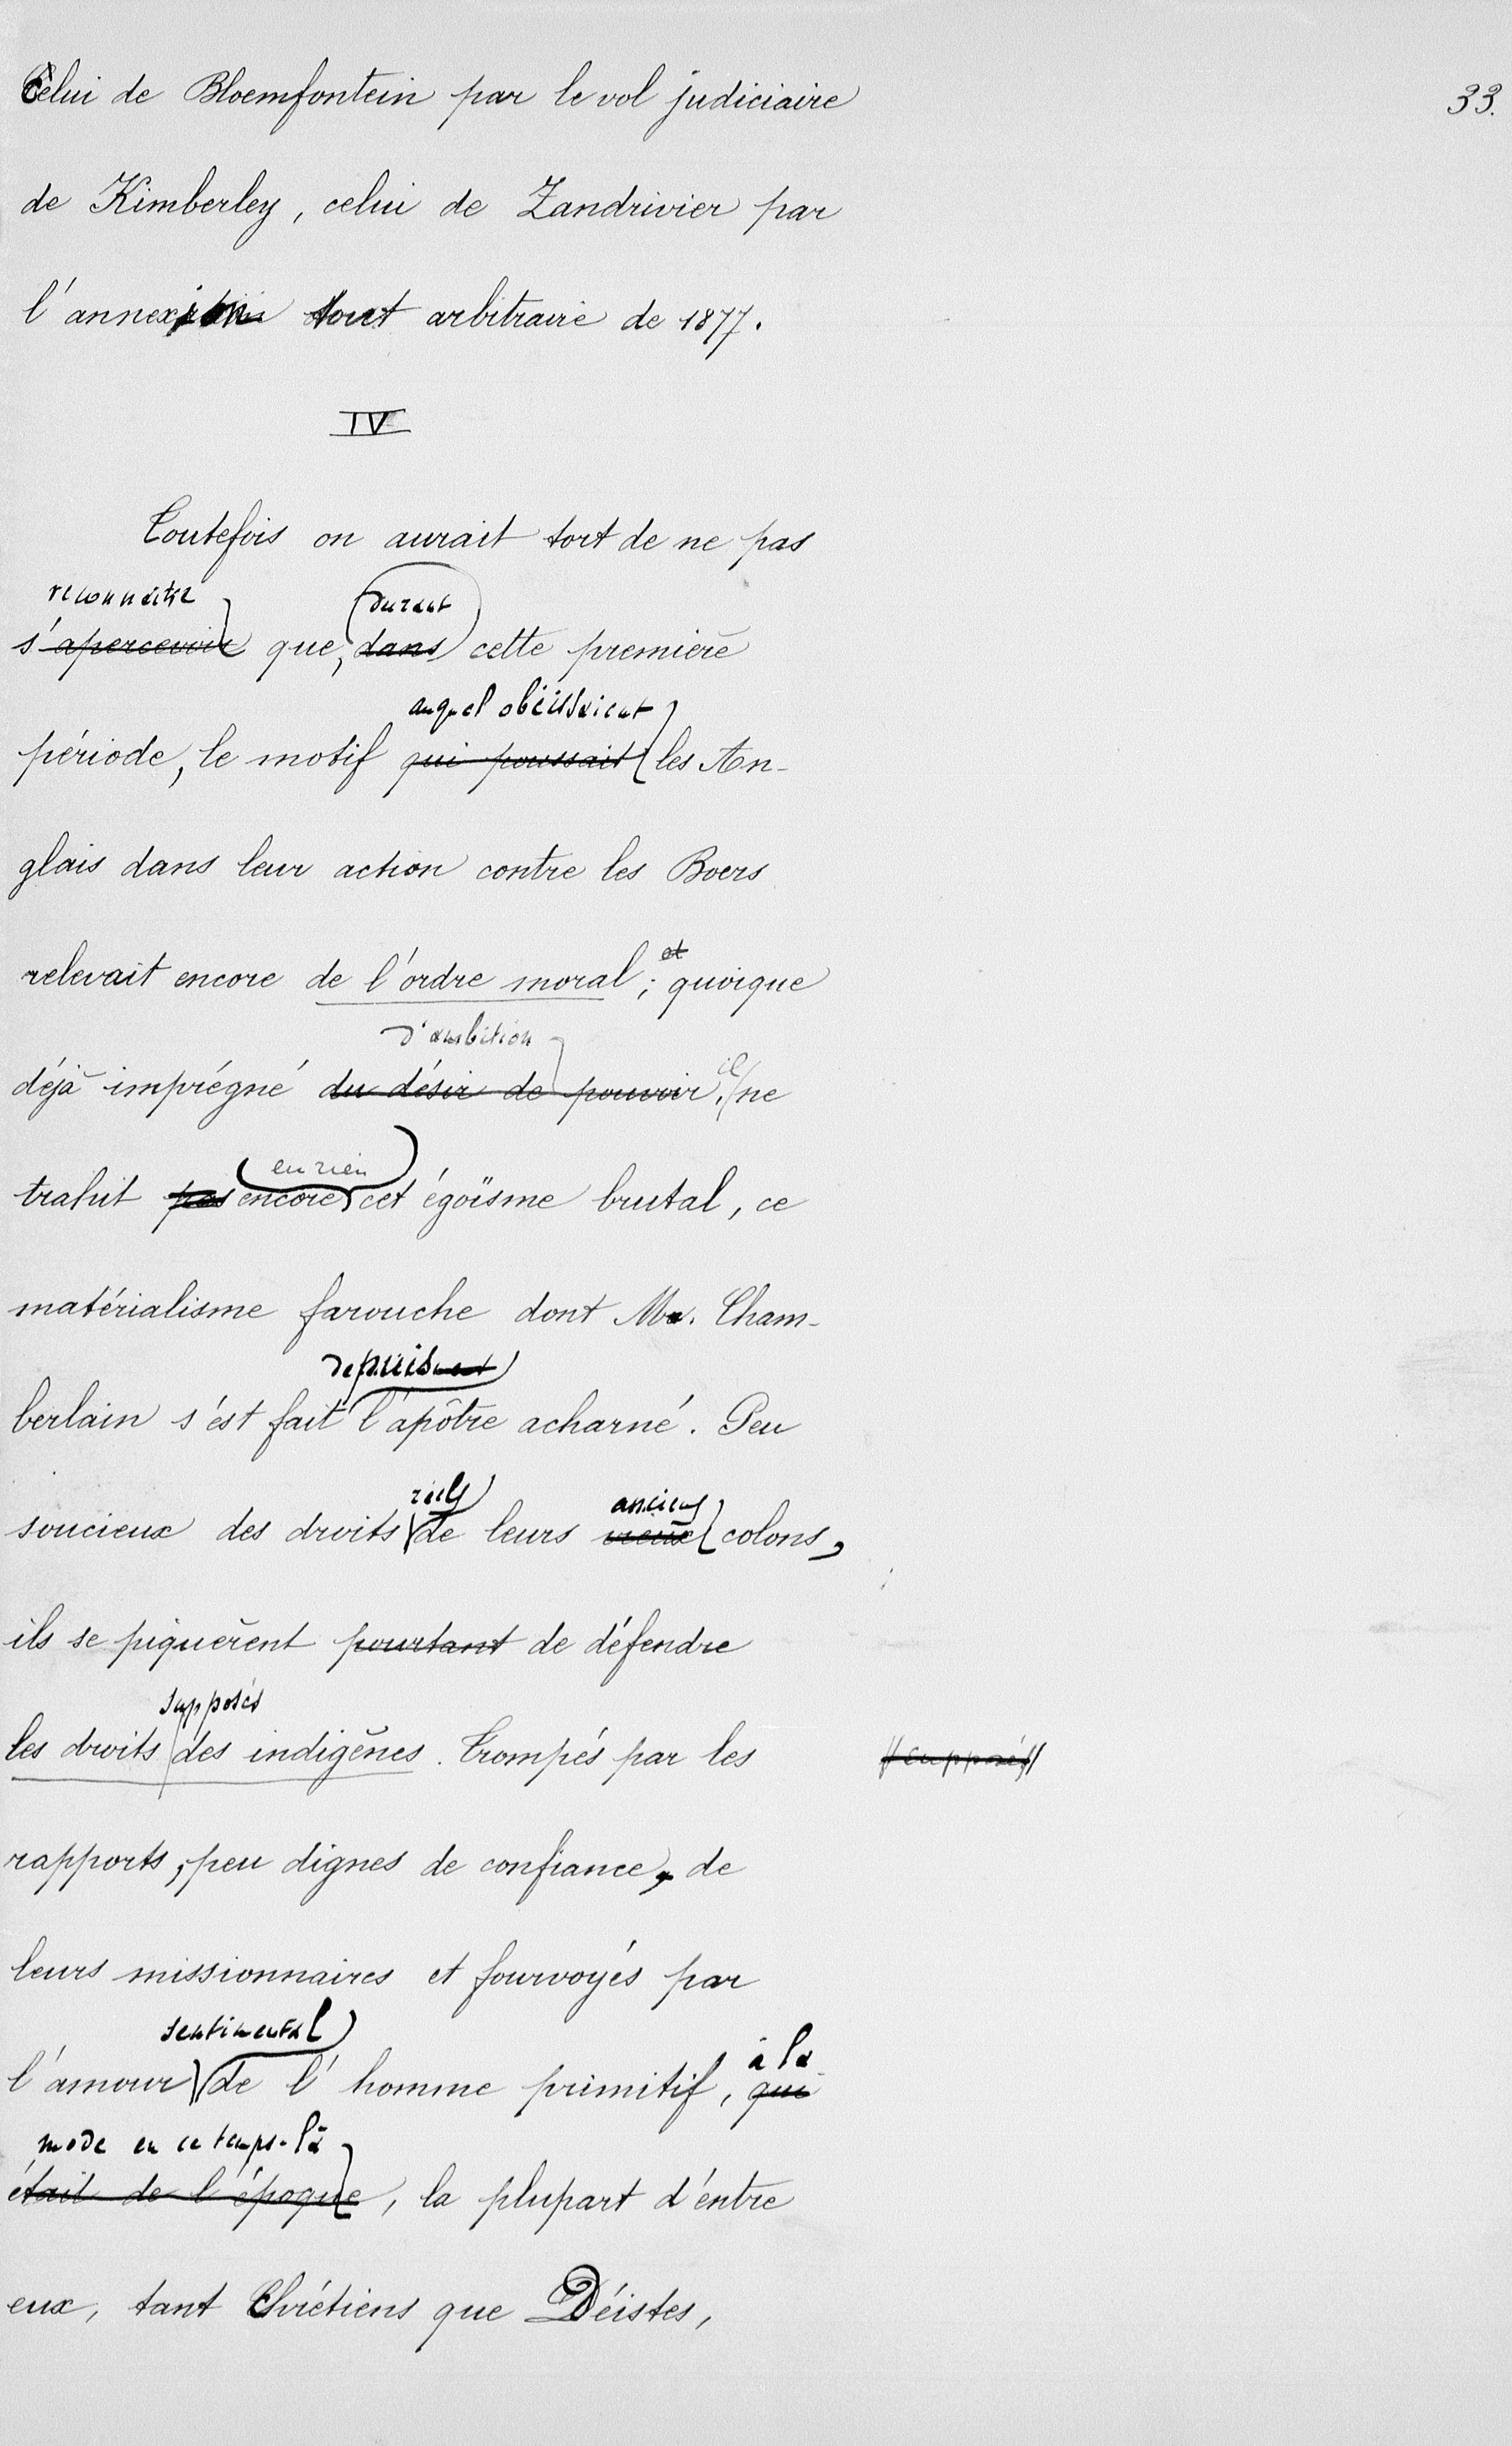 Celui de Bloemfontein par le vol judiciaire
33.
de Kimberley, celui de Zandrivier par
l'annexion tout arbitraire de 1877.
IV
Toutefois on aurait tort de ne pas
reconnaître durant
s'apercevoir que, dans cette première
auquel obéissaient
période, le motif qui poussait les An-
glais dans leur action contre les Boers
et
relevait encore de l'ordre moral; quoique
d'ambition il
déjà imprégné du désir de pouvoir, ne
en rien
trahit pas encore cet égoïsme brutal, ce
matérialisme farouche dont Mr. Cham-
depuis
berlain s'est fait l'apôtre acharné. Peu
réels anciens
soucieux des droits de leurs vieux colons,
ils se piquèrent pourtant de défendre
supposés
les droits des indigènes. Trompés par les
supposés
rapports, peu dignes de confiance, de
leurs missionnaires et fourvoyés par
sentimental à la
l'amour de l'homme primitif, qui
mode en ce temps-là
était de l'époque, la plupart d'entre
eux, tant Chrétiens que Déistes,